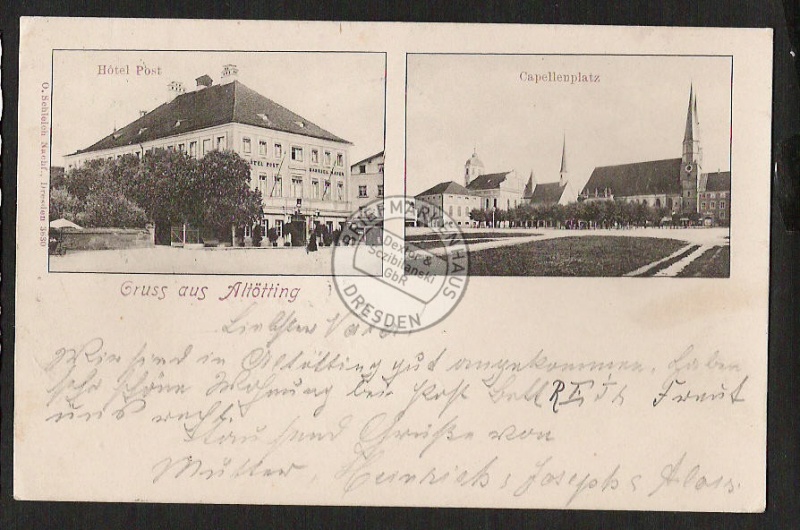 Hôtel Post
Capellenplatz
O. Schleich Nachf., Dresden 3930
HOTEL POST
Gruss aus Altötting
BRIEFMARKENHAUS
Dexler &
Sczibilanski
GbR
DRESDEN
Liebster Vater
Wir sind in Altötting gut angekommen, haben
sehr schöne Wohnung bei Post
uns recht.
Tausend Grüße von
Mutter, Heinrich, Joseph & Alois.